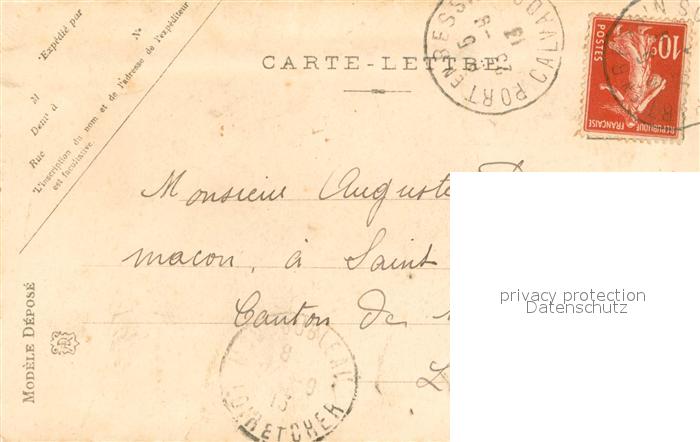 Expédié par
M
N°
Demt à
Rue
L'inscription du nom et de l'adresse de l'expéditeur
est facultative.
CARTE-LETTRE
PORT EN BESSIN CALVADOS
5 -8
13
10c
POSTES
REPUBLIQUE FRANÇAISE
Monsieur Auguste
macon, à Saint
Canton de
L
MODÈLE DÉPOSÉ
LOIR ET CHER
13
privacy protection
Datenschutz